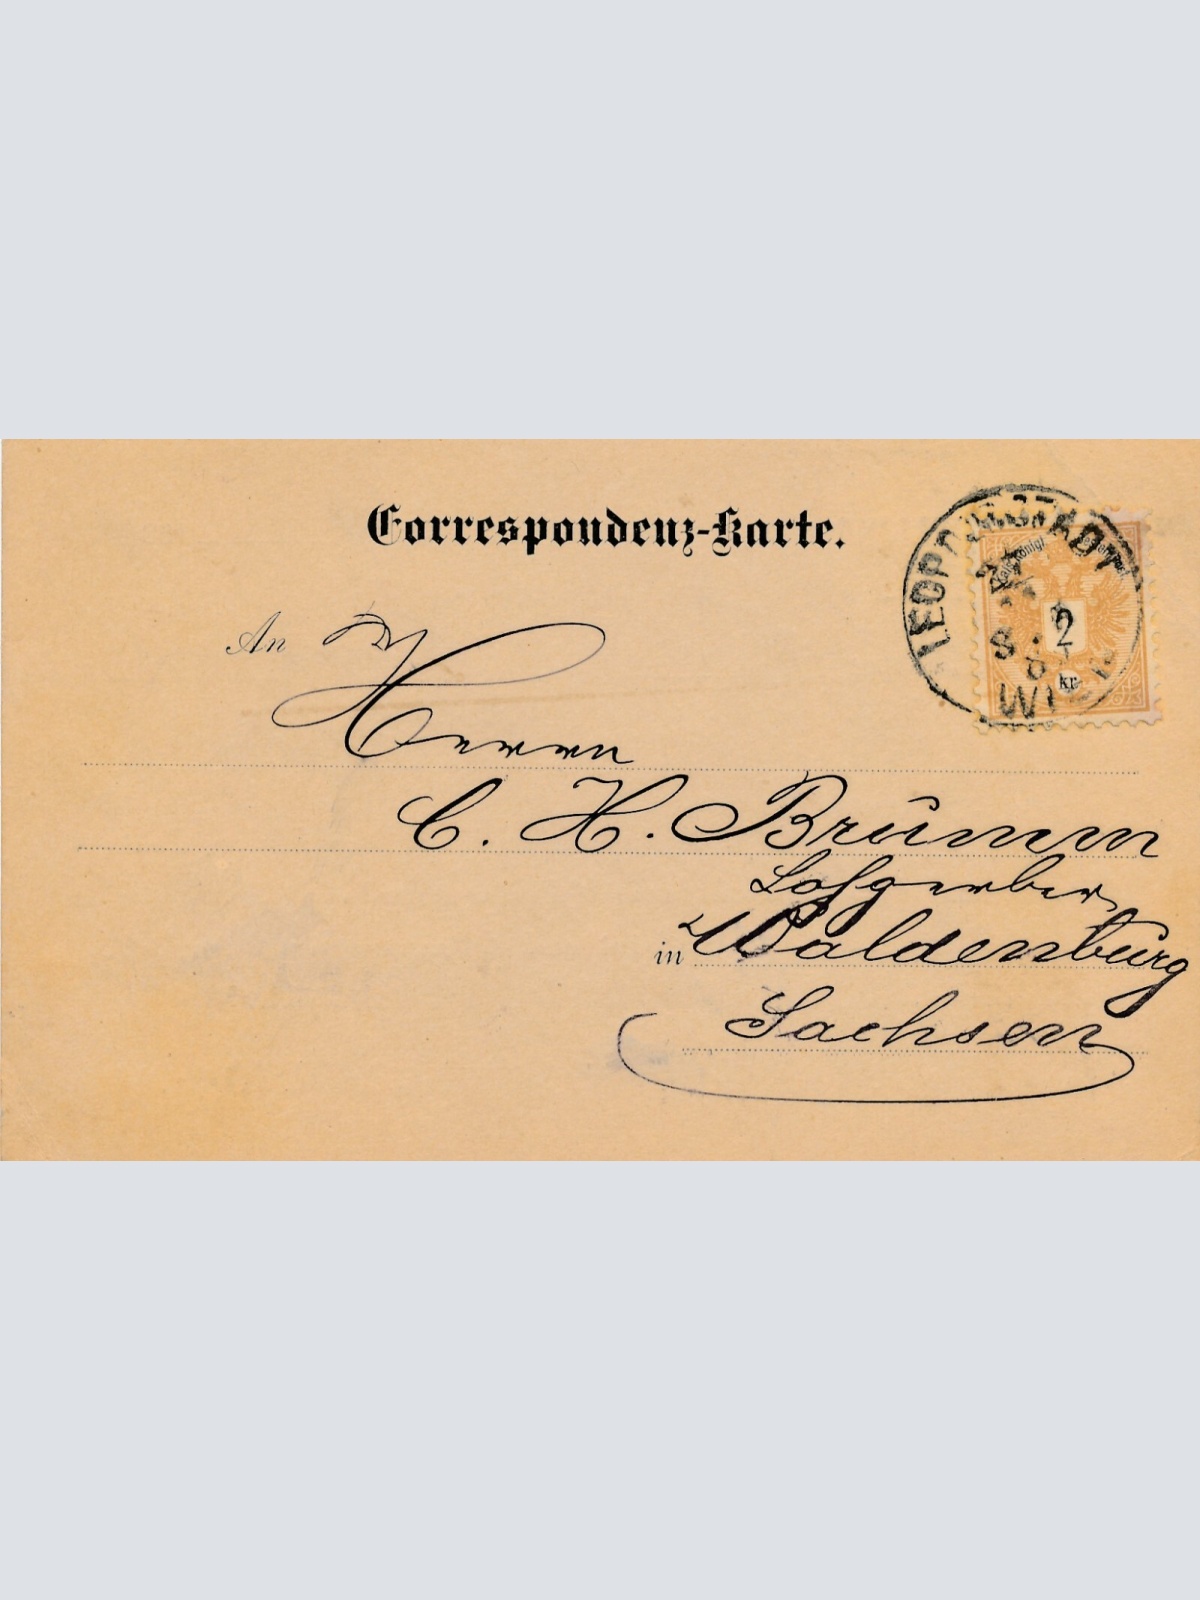 Correspondenz-Karte.
LEOPOLDSTADT
WIEN
2
kr.
An
Herrn
C. H. Brümm
Lohgerber
in Waldenburg
Sachsen